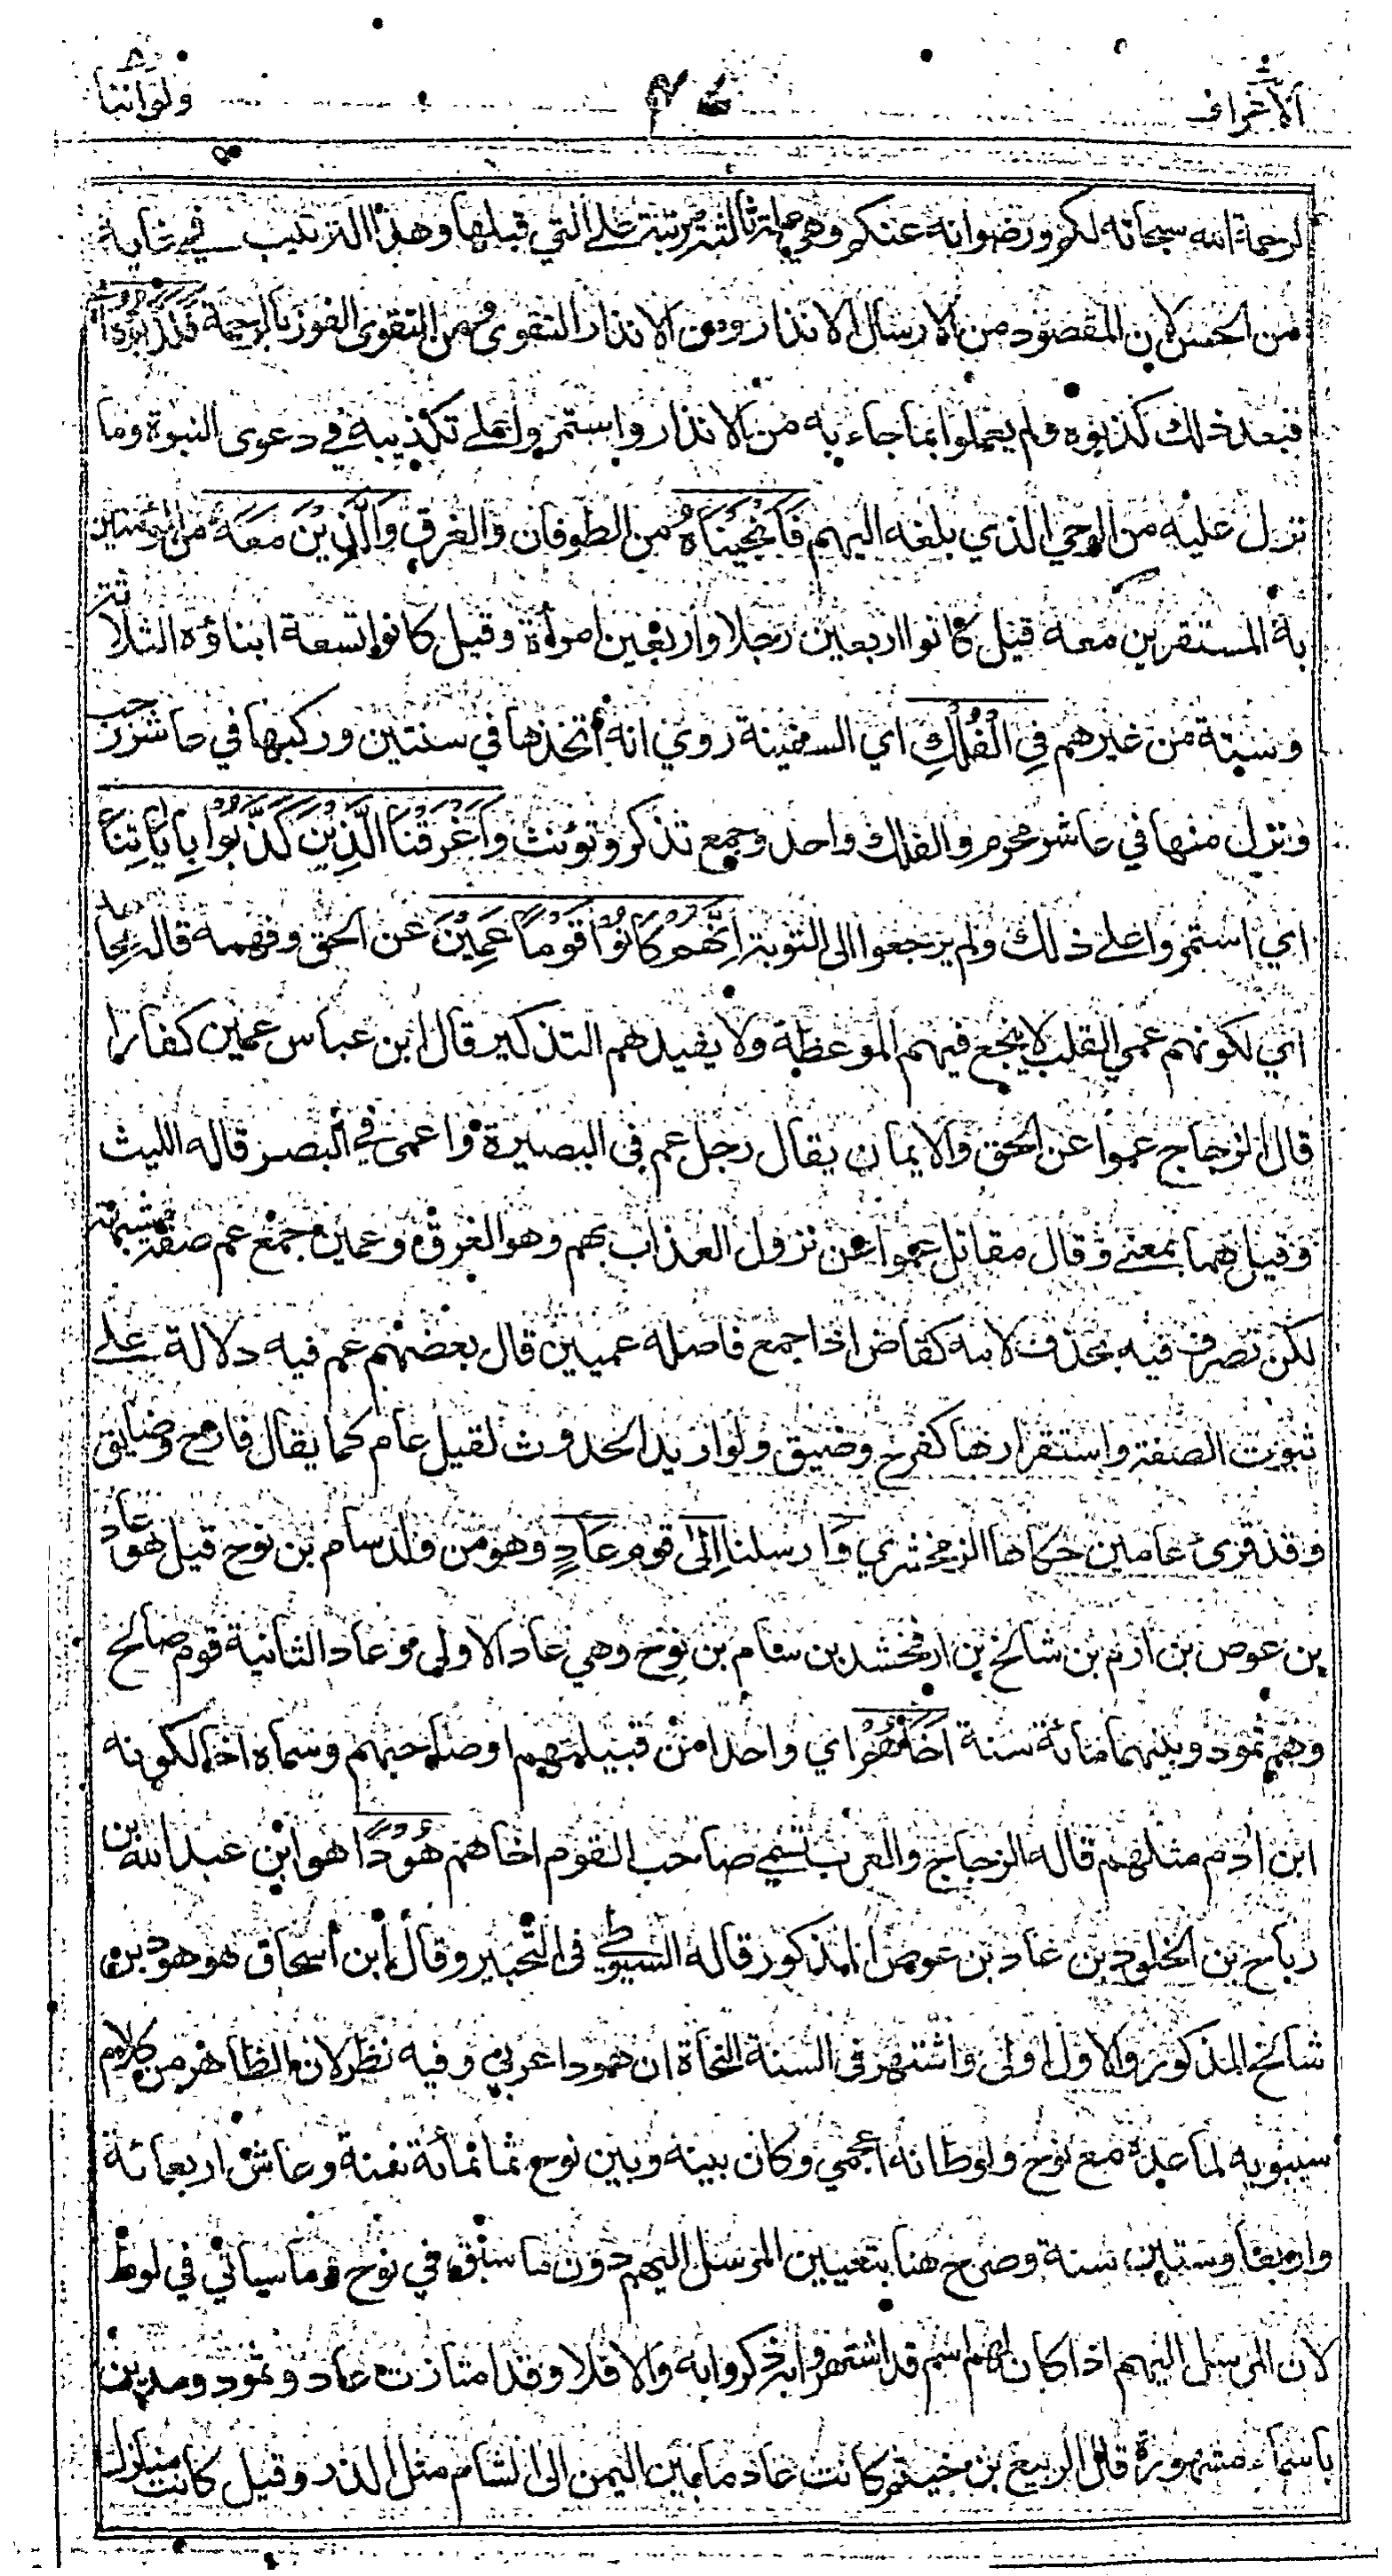 ولواننا ٨
الاعراف
لرحمة الله سبحانه لكم ورضوانه عنكم وهي جملة ثالثة مرتبة على التي قبلها وهذا الترتيب في غاية
من الحسن لان المقصود من الارسال الانذار ومن الانذار التقوى ومن التقوى الفوز بالرحمة فَكَذَّبُوهُ اي
فبعد ذلك كذبوه ولم يعملوا بما جاء به من الانذار واستمروا على تكذيبه في دعوى النبوة وما
نزل عليه من الوحي الذي بلغه اليهم فَاَنْجَيْنَاهُ من الطوفان والغرق وَالَّذِيْنَ مَعَهٗ من المؤمنين
به المستقرين معه قيل كانوا اربعين رجلا واربعين امرأة وقيل كانوا تسعة ابناؤه الثلاثة
وستة من غيرهم فِي الْفُلْكِ اي السفينة روي انه اتخذها في سنتين وركبها في عاشر رجب
ونزل منها في عاشر محرم والفلك واحد وجمع تذكر وتؤنث وَاَغْرَقْنَا الَّذِيْنَ كَذَّبُوْا بِاٰيَاتِنَا
اي استمروا على ذلك ولم يرجعوا الى التوبة اِنَّهُمْ كَانُوْا قَوْمًا عَمِيْنَ عن الحق وفهمه قاله مجاهد
اي لكونهم عمي القلب لا ينجع فيهم الموعظة ولا يفيدهم التذكير قال ابن عباس عمين كفارا
قال الزجاج عموا عن الحق والايمان يقال رجل عم في البصيرة واعمى في البصر قاله الليث
وقيل هما بمعنى وقال مقاتل عموا عن نزول العذاب بهم وهو الغرق وعمين جمع عم صفة مشبهة
لكن تصرف فيه بحذف لامه كقاض اذا جمع فاصله عميين قال بعضهم عم فيه دلالة على
ثبوت الصفة واستقرارها كفرح وضيق ولو اريد الحدوث لقيل عام كما يقال فارح وضايق
وقد قرئ عامين حكاها الزمخشري وَ ارسلنا اِلٰى قوم عَادٍ وهو من ولد سام بن نوح قيل هو عاد
بن عوص بن ارم بن شالخ بن ارفخشد بن سام بن نوح وهي عاد الاولى وعاد الثانية قوم صالح
وهم ثمود وبينهما مائة سنة اَخَاهُمْ اي واحدا من قبيلتهم او صاحبهم وسماه اخا لكونه
ابن ادم مثلهم قاله الزجاج والعرب تسمي صاحب القوم اخاهم هُوْدًا هو ابن عبد الله بن
رباح بن الخلود بن عاد بن عوص المذكور قاله السيوطي في التحبير وقال ابن اسحاق هو هود بن
شالخ المذكور والاول اولى واشتهر في السنة النحاة ان هودا عربي وفيه نظر لان الظاهر من كلام
سيبويه لما عده مع نوح ولوط انه اعجمي وكان بينه وبين نوح ثمانمائة سنة وعاش اربعمائة
واربعا وستين سنة وصرح هنا بتعيين المرسل اليهم دون ما سبق في نوح وما سيأتي في لوط
لان المرسل اليهم اذا كان لهم اسم قد اشتهروا به ذكروا به والا فلا وقد امتازت عاد وثمود ومدين
باسماء مشهورة قال الربيع بن خيثم كانت عاد ما بين اليمن الى الشام مثل الذر وقيل كانت منازل